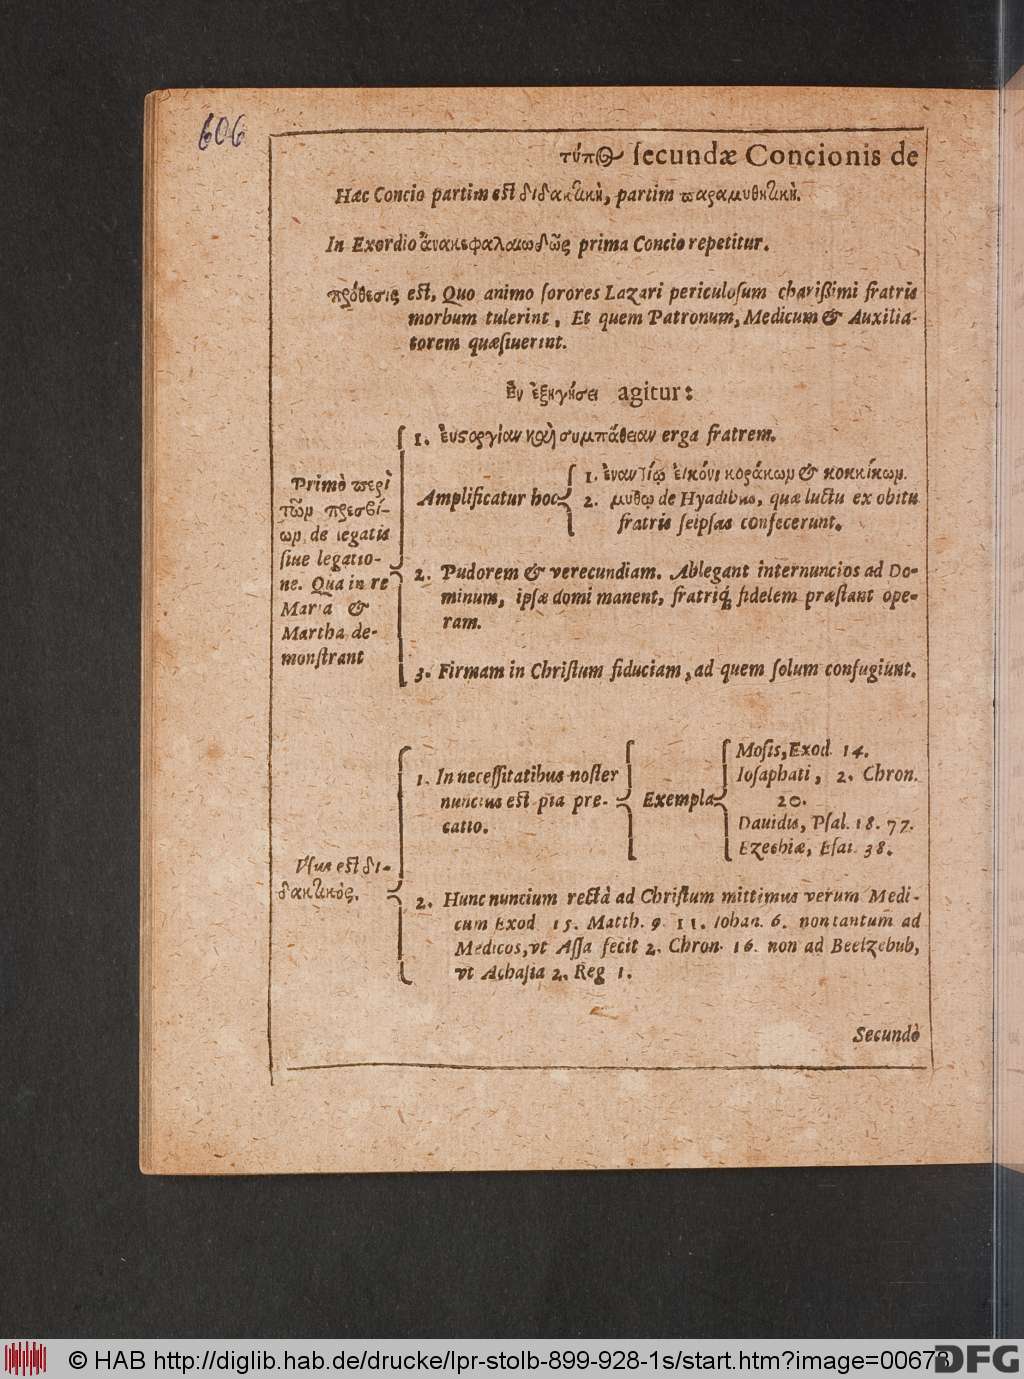 606
τύπος secundæ Concionis de
Hæc Concio partim est διδακτικὴ, partim παραμυθητικὴ.
In Exordio ἀνακεφαλαιωδῶς prima Concio repetitur.
πρόθεσις est, Quo animo sorores Lazari periculosum charißimi fratris
morbum tulerint, Et quem Patronum, Medicum & Auxilia-
torem quæsiuerint.
Ἐν ἐξηγήσει agitur:
Primò περὶ
τῶν πρεσβί-
ων, de legatis
siue legatio-
ne. Qua in re
Maria &
Martha de-
monstrant
1. ἐυστοργίαν καὶ συμπάθειαν erga fratrem.
Amplificatur hoc
1. ἐναντίῳ ἐικόνι κοράκων & κοκκίκων.
2. μύθῳ de Hyadibus, quæ luctu ex obitu
fratris seipsas confecerunt.
2. Pudorem & verecundiam. Ablegant internuncios ad Do-
minum, ipsæ domi manent, fratriq́; fidelem præstant ope-
ram.
3. Firmam in Christum fiduciam, ad quem solum confugiunt.
Vsus est δι-
δακτικὸς.
1. In necessitatibus noster
nuncius est pia pre-
catio.
Exempla
Mosis, Exod. 14.
Iosaphati, 2. Chron.
20.
Dauidis, Psal. 18. 77.
Ezechiæ, Esai. 38.
2. Hunc nuncium rectà ad Christum mittimus verum Medi-
cum Exod 15. Matth. 9. 11. Iohan. 6. non tantum ad
Medicos, vt Assa fecit 2. Chron. 16. non ad Beelzebub,
vt Achasia 2. Reg 1.
Secundò
© HAB http://diglib.hab.de/drucke/lpr-stolb-899-928-1s/start.htm?image=00678
DFG